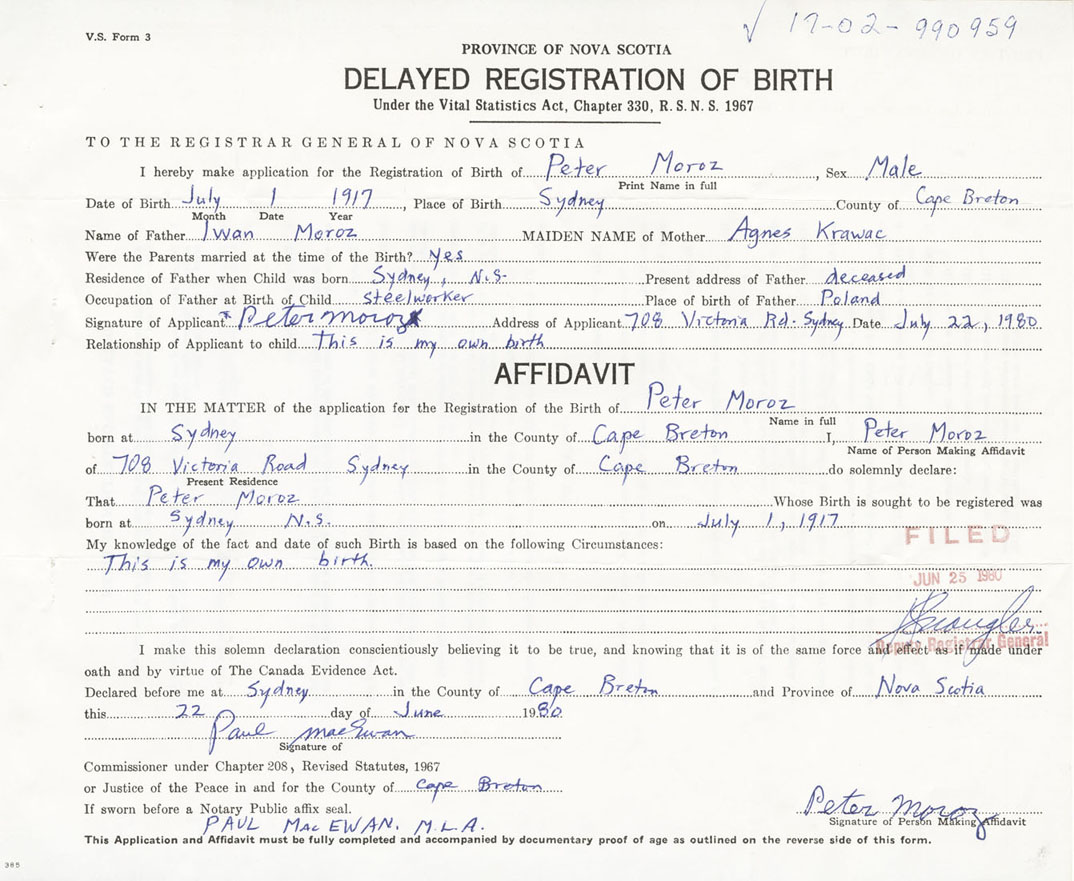 V.S. Form 3
√ 17-02-990959
PROVINCE OF NOVA SCOTIA
DELAYED REGISTRATION OF BIRTH
Under the Vital Statistics Act, Chapter 330, R.S.N.S. 1967
TO THE REGISTRAR GENERAL OF NOVA SCOTIA
I hereby make application for the Registration of Birth of Peter Moroz, Sex Male
Print Name in full
Date of Birth July 1 1917, Place of Birth Sydney County of Cape Breton
Month Date Year
Name of Father Iwan Moroz MAIDEN NAME of Mother Agnes Krawac
Were the Parents married at the time of the Birth? Yes
Residence of Father when Child was born Sydney, N.S. Present address of Father deceased
Occupation of Father at Birth of Child steelworker Place of birth of Father Poland
Signature of Applicant Peter Moroz Address of Applicant 708 Victoria Rd. Sydney Date July 22, 1980
Relationship of Applicant to child This is my own birth
AFFIDAVIT
IN THE MATTER of the application for the Registration of the Birth of Peter Moroz
Name in full
born at Sydney in the County of Cape Breton I, Peter Moroz
Name of Person Making Affidavit
of 708 Victoria Road Sydney in the County of Cape Breton do solemnly declare:
Present Residence
That Peter Moroz Whose Birth is sought to be registered was
born at Sydney N.S. on July 1, 1917
My knowledge of the fact and date of such Birth is based on the following Circumstances:
This is my own birth.
FILED
JUN 25 1980
Deputy Registrar General
I make this solemn declaration conscientiously believing it to be true, and knowing that it is of the same force and effect as if made under
oath and by virtue of The Canada Evidence Act.
Declared before me at Sydney in the County of Cape Breton and Province of Nova Scotia
this 22 day of June 1980
Paul MacEwan
Signature of
Commissioner under Chapter 208, Revised Statutes, 1967
or Justice of the Peace in and for the County of Cape Breton
If sworn before a Notary Public affix seal.
Peter Moroz
Signature of Person Making Affidavit
PAUL MacEWAN, M.L.A.
This Application and Affidavit must be fully completed and accompanied by documentary proof of age as outlined on the reverse side of this form.
385